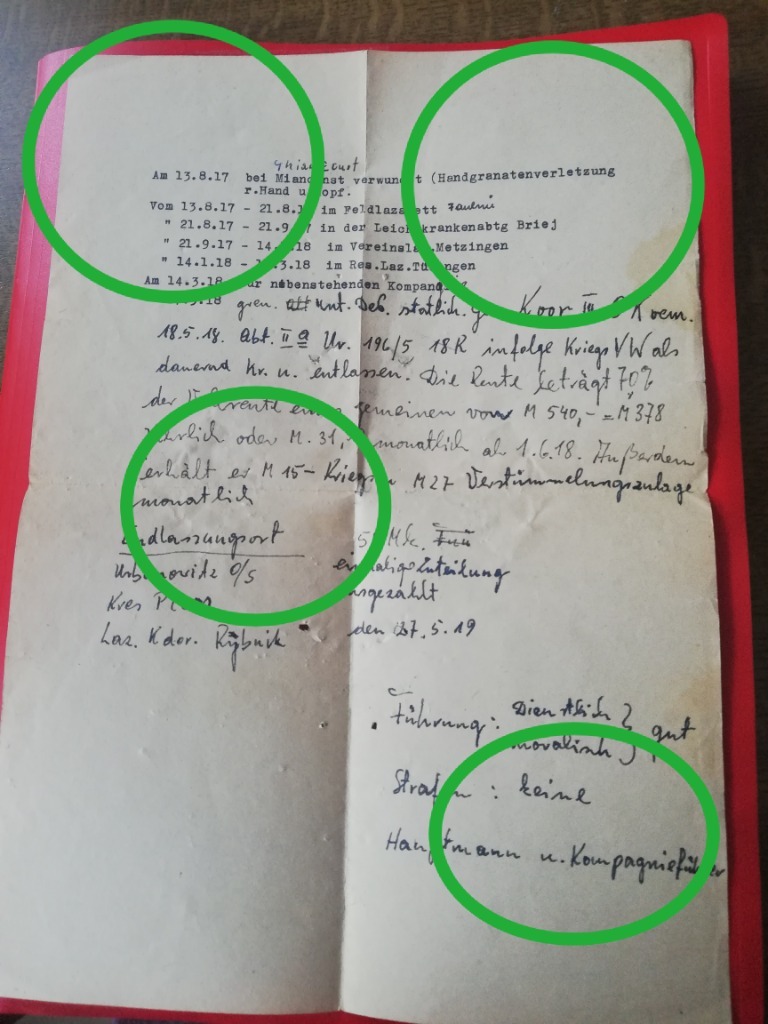 Am 13.8.17 bei verwundet (Handgranatenverletzung
r.Hand u.Kopf.
Vom 13.8.17 - 21.8.17 im Feldlazarett
" 21.8.17 - 21.9.17 in der Leichtkrankenabtg Briej
" 21.9.17 - 14.1.18 im Vereinslaz.Metzingen
" 14.1.18 - 14.3.18 im Res.Laz.Tübingen
Am 14.3.18 zur nebenstehenden Kompanie
gem. statlich. Gen. III
18.5.18. Abt. II a Nr. 196/5 18 R infolge Kriegs VW als
dauernd kr. u. entlassen. Die Rente beträgt 70%
der Vollrente eines gemeinen von M 540,- = M 378
jährlich oder M. 31, monatlich ab 1.6.18. Außerdem
erhält er M 15 - Kriegs u M 27 Verstümmelungszulage
monatlich
Endlassungsort
Urbanowitz O/S
Kres Pless
Laz. Kdor. Rybnik
Mk.
einmalige Zuteilung
ausgezahlt
den 27.5.19
Führung: Dienstlich } gut
moralisch }
Strafen : keine
Hauptmann u. Kompagnieführer